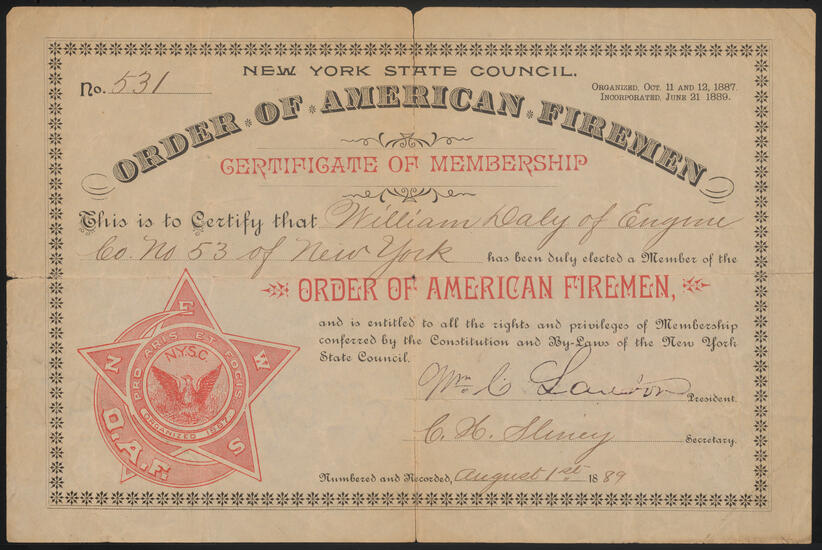 NEW YORK STATE COUNCIL.
No. 531
ORGANIZED, OCT. 11 AND 12, 1887.
INCORPORATED, JUNE 21 1889.
ORDER * OF * AMERICAN * FIREMEN
CERTIFICATE OF MEMBERSHIP
This is to Certify that William Daly of Engine
Co. No 53 of New York has been duly elected a Member of the
ORDER OF AMERICAN FIREMEN,
and is entitled to all the rights and privileges of Membership
conferred by the Constitution and By-Laws of the New York
State Council.
Wm C President.
C. H. Secretary.
Numbered and Recorded, August 1st 1889
N E W S
PRO ARIS ET FOCIS
N.Y.S.C.
ORGANIZED 1887
O.A.F.